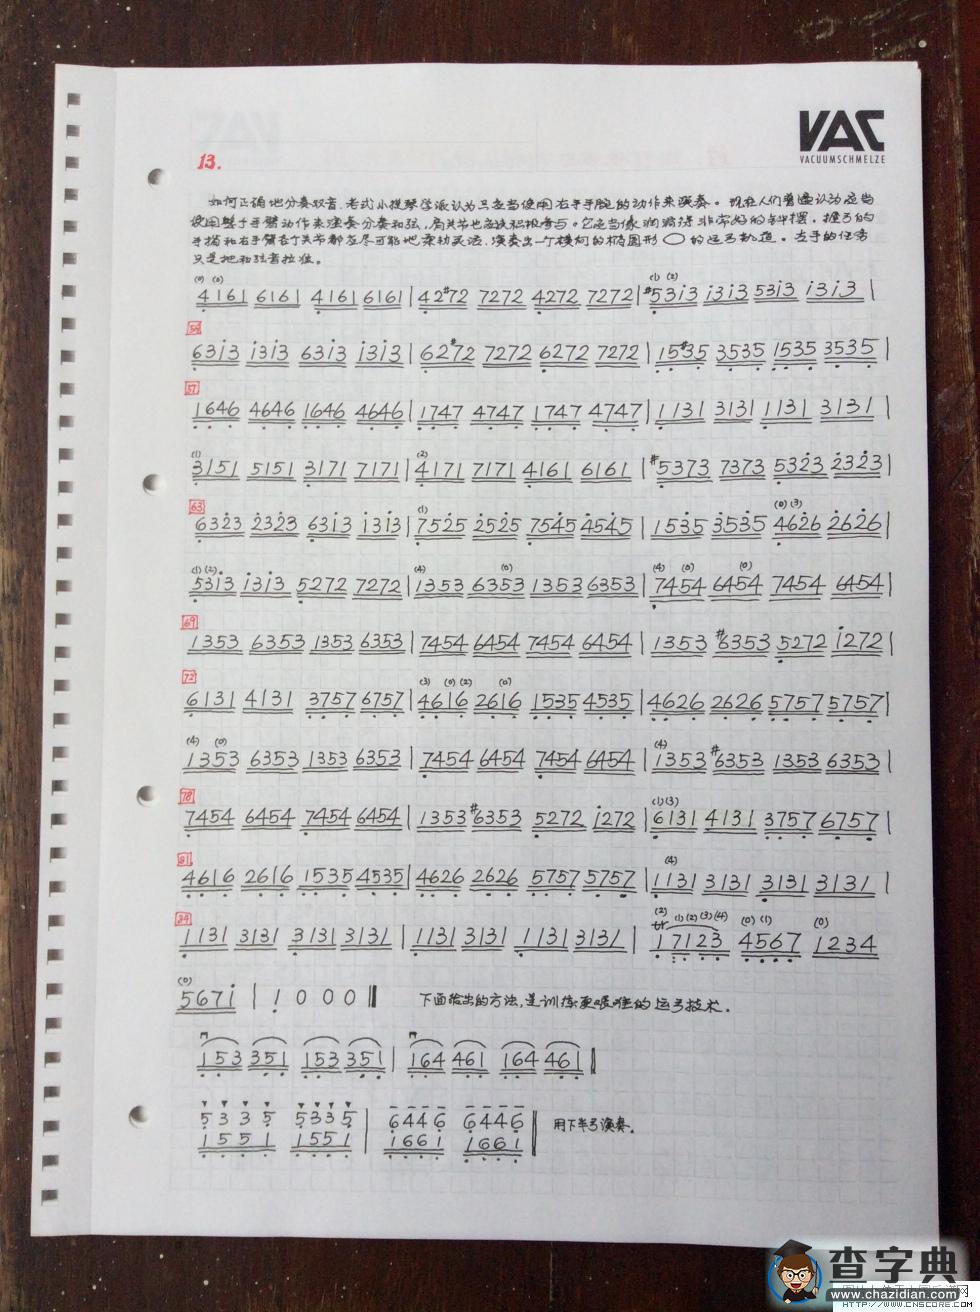 VAC
VACUUMSCHMELZE
13.
如何正确地分奏双音。老式小提琴学派认为只应当使用右手手腕的动作来演奏。现在人们普遍认为应当
使用整个手臂动作来演奏分奏和弦,肩关节也应该积极参与。它应当像润滑得非常好的钟摆。握弓的
手指和右手臂各个关节都应尽可能地柔韧灵活,演奏出一个横向的椭圆形 的运弓轨道。左手的任务
只是把和弦音按准。
(0) (0) (1) (2)
4161 6161 4161 6161 | 42#72 7272 4272 7272 | #53i3 i3i3 53i3 i3i3 |
54
63i3 i3i3 63i3 i3i3 | 62#72 7272 6272 7272 | 15#35 3535 1535 3535 |
57
1646 4646 1646 4646 | 1747 4747 1747 4747 | 1131 3131 1131 3131 |
(1) (2)
3151 5151 3171 7171 | 4171 7171 4161 6161 | #5373 7373 5323 2323 |
63
(1) (0) (3)
6323 2323 63i3 i3i3 | 7525 2525 7545 4545 | 1535 3535 4626 2626 |
(1) (2) (4) (0) (4) (0) (0)
53i3 i3i3 5272 7272 | 1353 6353 1353 6353 | 7454 6454 7454 6454 |
69
1353 6353 1353 6353 | 7454 6454 7454 6454 | 1353 #6353 5272 i272 |
72
(3) (0) (2) (0)
6131 4131 3757 6757 | 4616 2616 1535 4535 | 4626 2626 5757 5757 |
(4) (0) (4)
1353 6353 1353 6353 | 7454 6454 7454 6454 | 1353 #6353 1353 6353 |
78
(1) (3)
7454 6454 7454 6454 | 1353 #6353 5272 i272 | 6131 4131 3757 6757 |
81
(4)
4616 2616 1535 4535 | 4626 2626 5757 5757 | 1131 3131 3131 3131 |
84
(2) (1) (2) (3) (4) (0) (1) (0)
tr
1131 3131 3131 3131 | 1131 3131 1131 3131 | 17123 4567 1234
(0)
567i | 1 0 0 0 ‖ 下面给出的方法,是训练更艰难的运弓技术。
153 351 153 351 | 164 461 164 461 ‖
5 3 3 5 5 3 3 5 | 6 4 4 6 6 4 4 6 ‖ 用下半弓演奏。
1 5 5 1 1 5 5 1 | 1 6 6 1 1 6 6 1
查字典
www.chazidian.com
HTTP://WWW.CNSCORE.COM